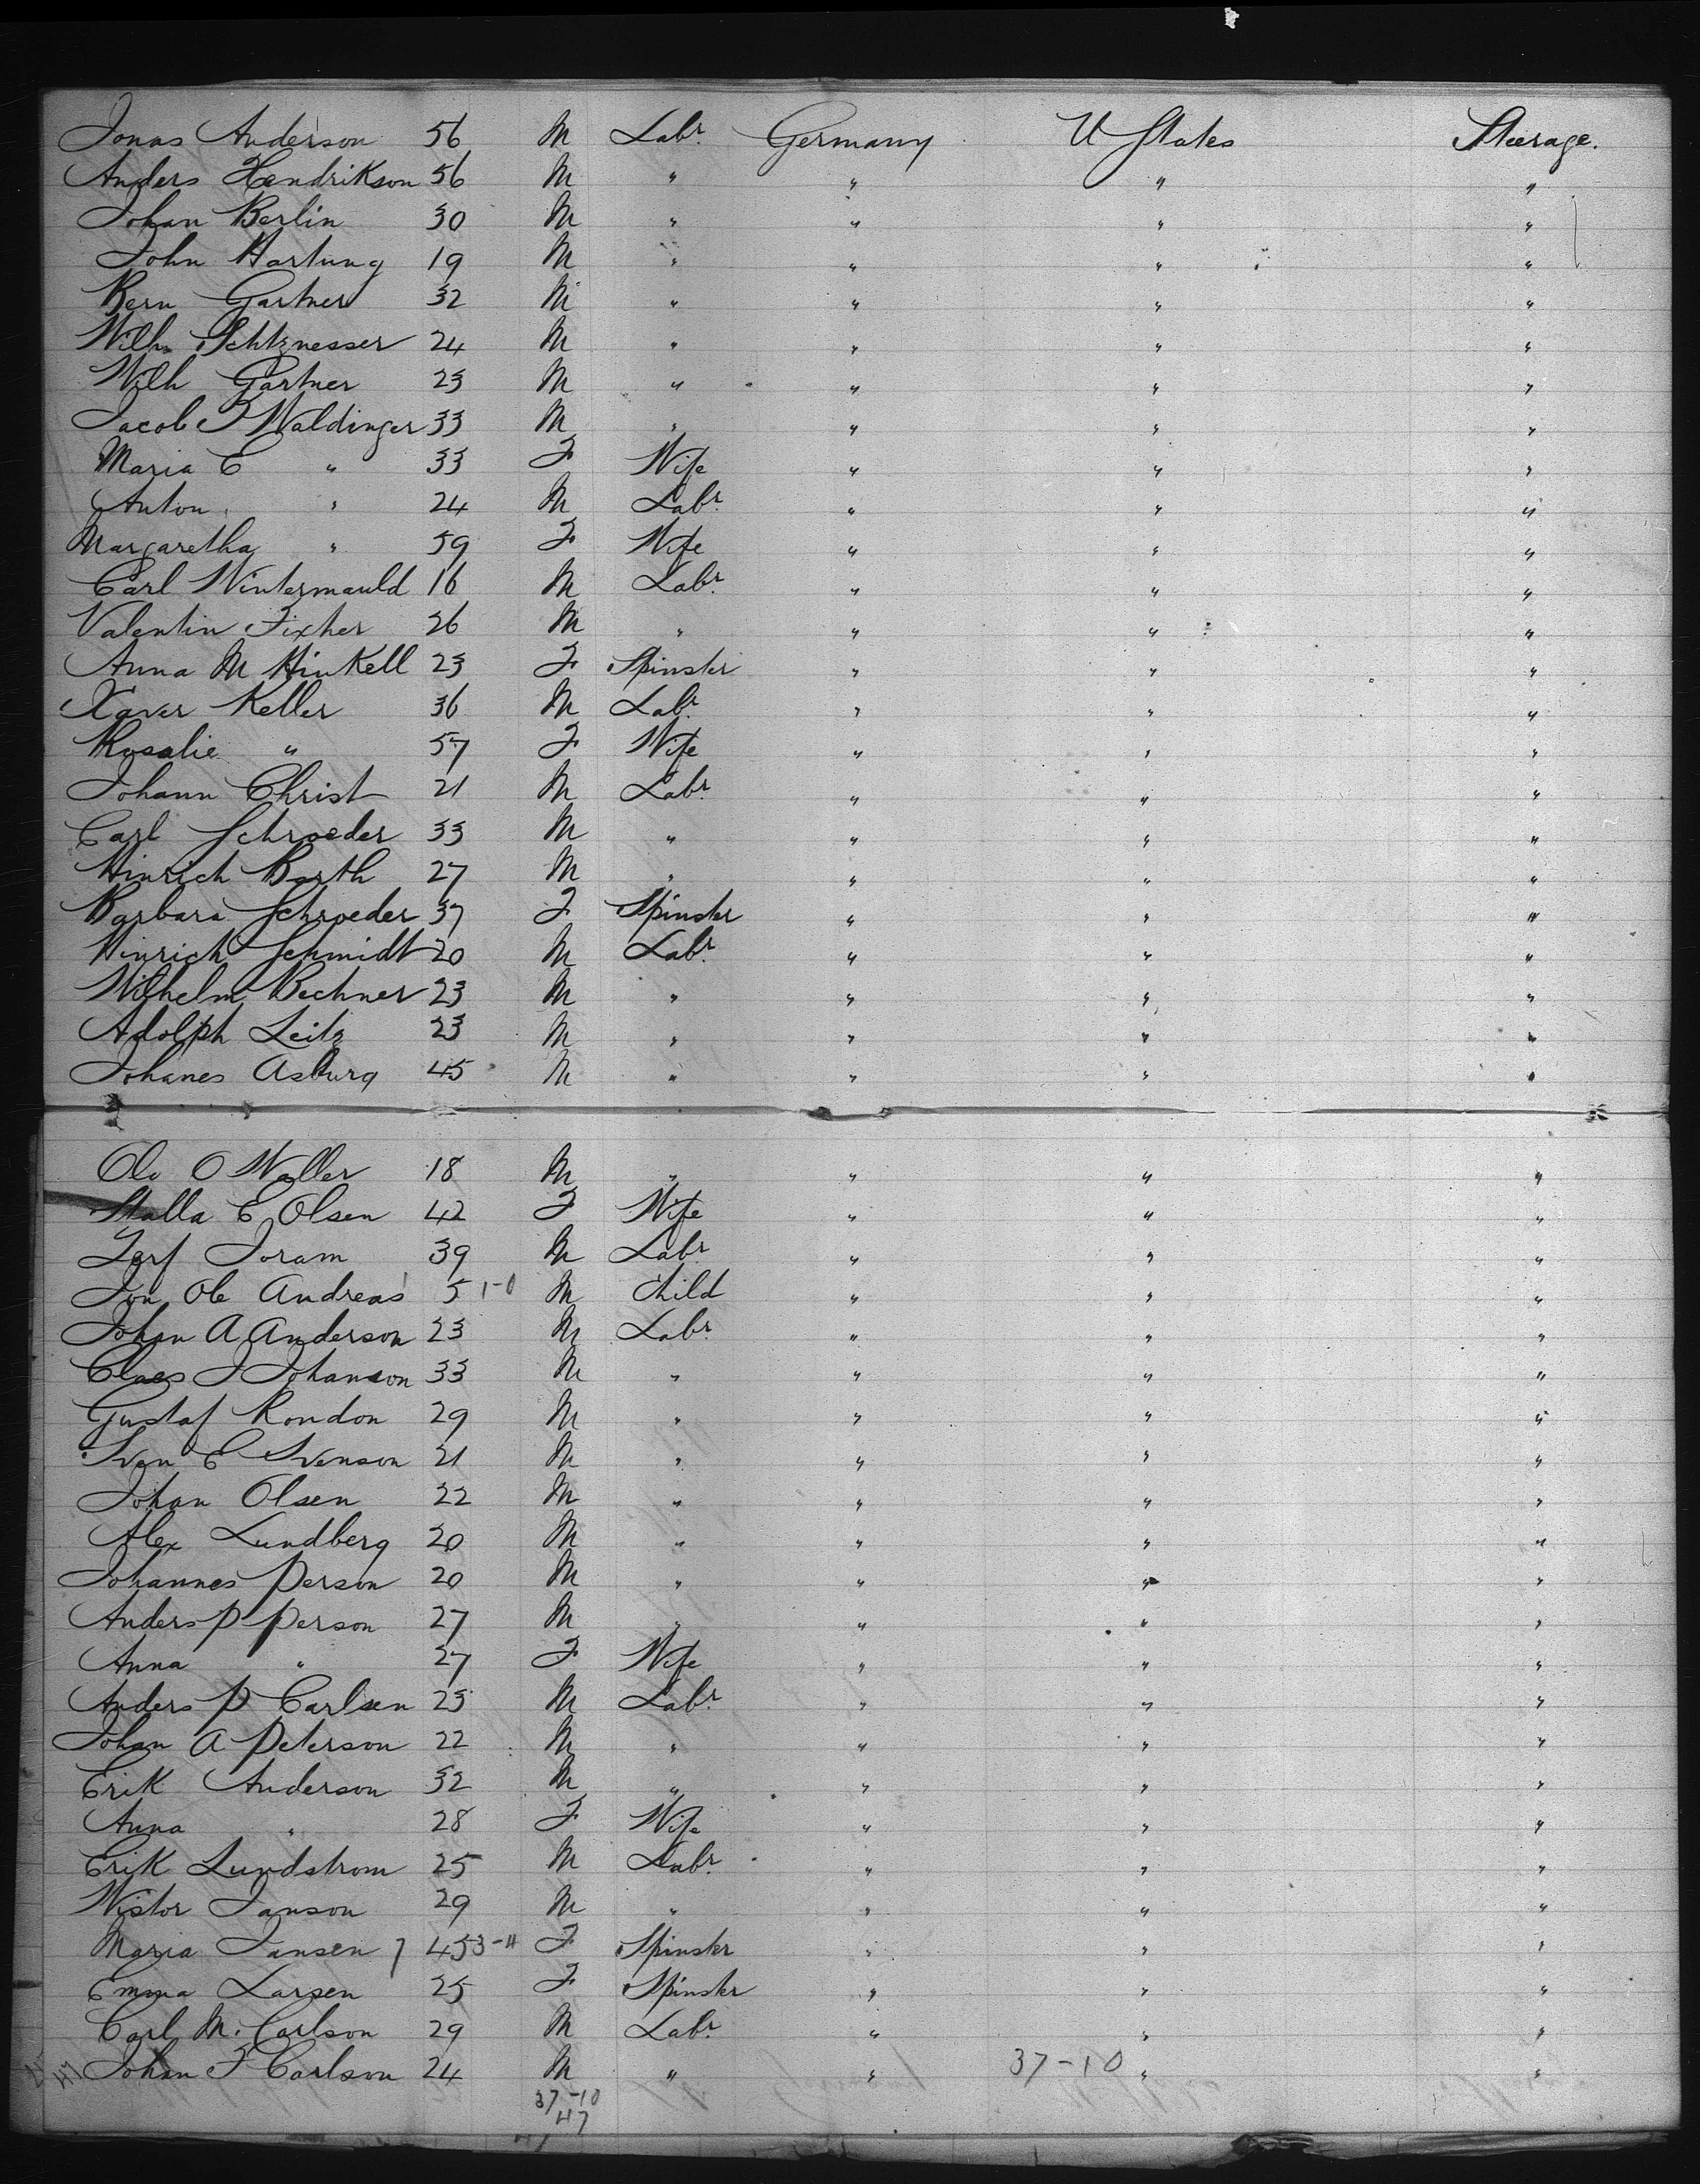 Jonas Anderson 56 M Labr. Germany U States Steerage.
Anders Hendrikson 56 M " " " "
Johan Berlin 30 M " " " "
John Hartung 19 M " " " "
Bern Gartner 32 M " " " "
Wilh. Schtznesser 24 M " " " "
Wilh Gartner 23 M " " " "
Jacob J Waldinger 33 M " " " "
Maria C " 33 F Wife " " "
Anton " 24 M Labr. " " "
Margaretha " 59 F Wife " " "
Carl Wintermauld 16 M Labr. " " "
Valentin Fixher 26 M " " " "
Anna M Hinkell 23 F Spinster " " "
Xaver Keller 36 M Labr. " " "
Rosalie " 57 F Wife " " "
Johann Christ 21 M Labr. " " "
Carl Schroeder 33 M " " " "
Hinrich Barth 27 M " " " "
Barbara Schroeder 37 F Spinster " " "
Hinrich Schmidt 20 M Labr. " " "
Wilhelm Bechner 23 M " " " "
Adolph Leitz 23 M " " " "
Johanes Asburg 45 M " " " "
Ole O Waller 18 M " " " "
Malla E Olsen 42 F Wife " " "
Joram 39 M Labr. " " "
Jon Ole Andreas 5 1-0 M Child " " "
Johan A Anderson 23 M Labr. " " "
Claes J Johanson 33 M " " " "
Gustaf Rondon 29 M " " " "
Sven E Svenson 21 M " " " "
Johan Olsen 22 M " " " "
Alex Lundberg 20 M " " " "
Johannes Person 20 M " " " "
Anders P Person 27 M " " " "
Anna " 27 F Wife " " "
Anders P Carlsen 23 M Labr. " " "
Johan A Peterson 22 M " " " "
Erik Anderson 32 M " " " "
Anna " 28 F Wife " " "
Erik Lundstrom 25 M Labr. " " "
Wistor Janson 29 M " " " "
Maria Jansen 7 45 3-11 F Spinster " " "
Emma Larsen 25 F Spinster " " "
Carl M. Carlson 29 M Labr. " " "
47 Johan F Carlson 24 M " " 37-10 " "
37-10
47